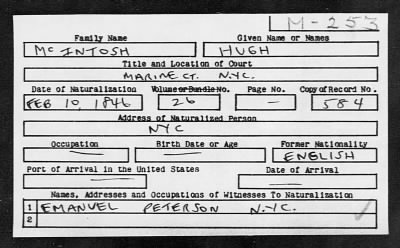 M-253
Family Name Given Name or Names
McINTOSH HUGH
Title and Location of Court
MARINE CT. N.Y.C.
Date of Naturalization Volume or Bundle No. Page No. Copy of Record No.
FEB 10, 1846 26 — 584
Address of Naturalized Person
NYC
Occupation Birth Date or Age Former Nationality
— — ENGLISH
Port of Arrival in the United States Date of Arrival
— —
Names, Addresses and Occupations of Witnesses To Naturalization
1 EMANUEL PETERSON N.Y.C.
2